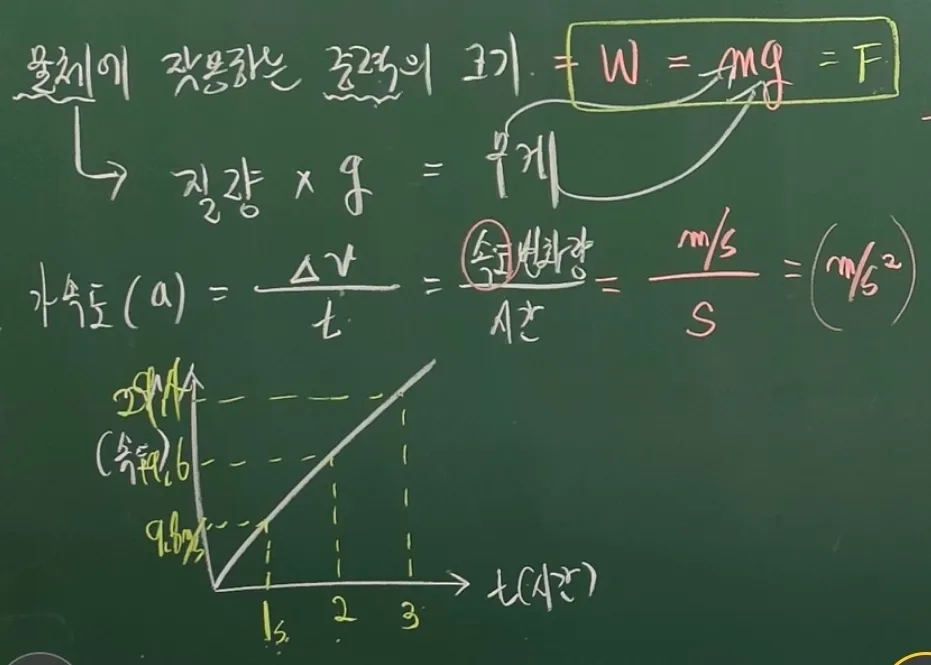 물체에 작용하는 중력의 크기 = W = mg = F
질량 × g = 무게
가속도(a) = Δv/t = 속도변화량/시간 = m/s/s = (m/s²)
29.4
(속도) 19.6
9.8m/s
1s 2 3
t(시간)